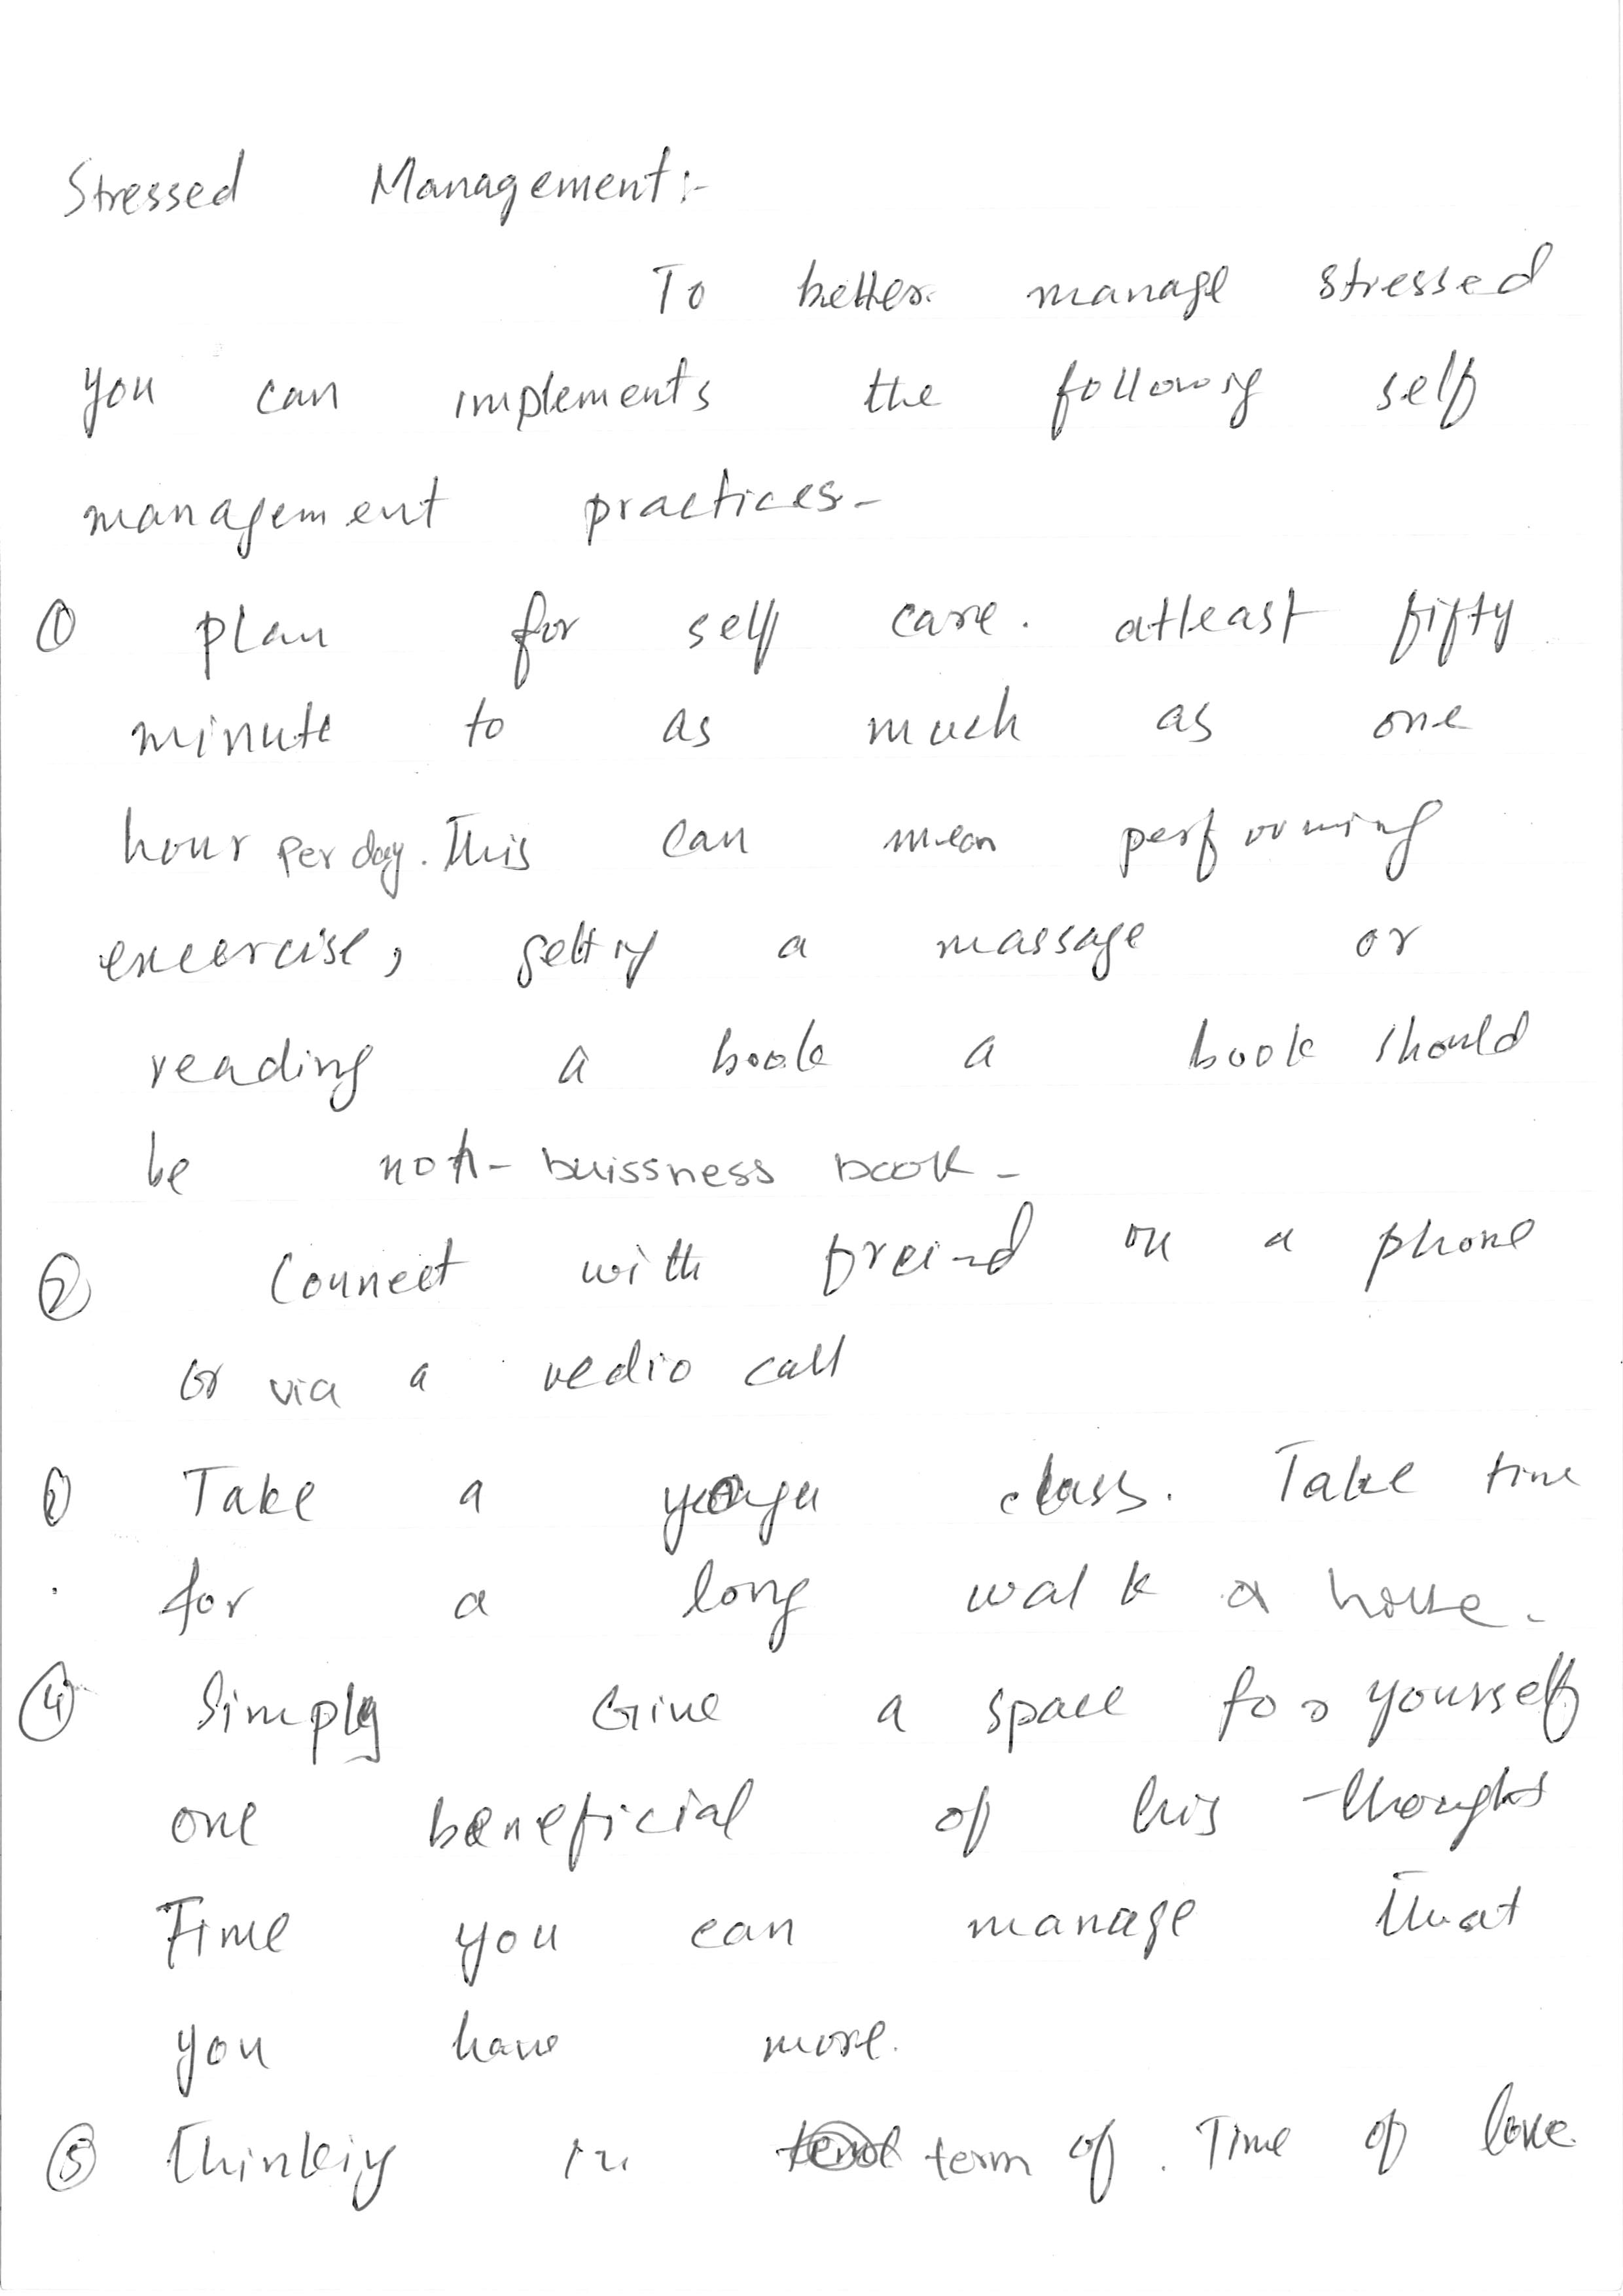 Stressed Management:-
To better manage stressed
you can implements the following self
management practices-
① plan for self care. atleast fifty
minute to as much as one
hour per day. This can mean performing
excercise, getting a massage or
reading a book a book should
be not- buissness book-
② Connect with freind on a phone
or via a vedio call
③ Take a yoga class. Take time
for a long walk a
④ Simply Give a space for yourself
one beneficial of his thought
Time you can manage that
you have more.
⑤ thinking in term of. Time of love